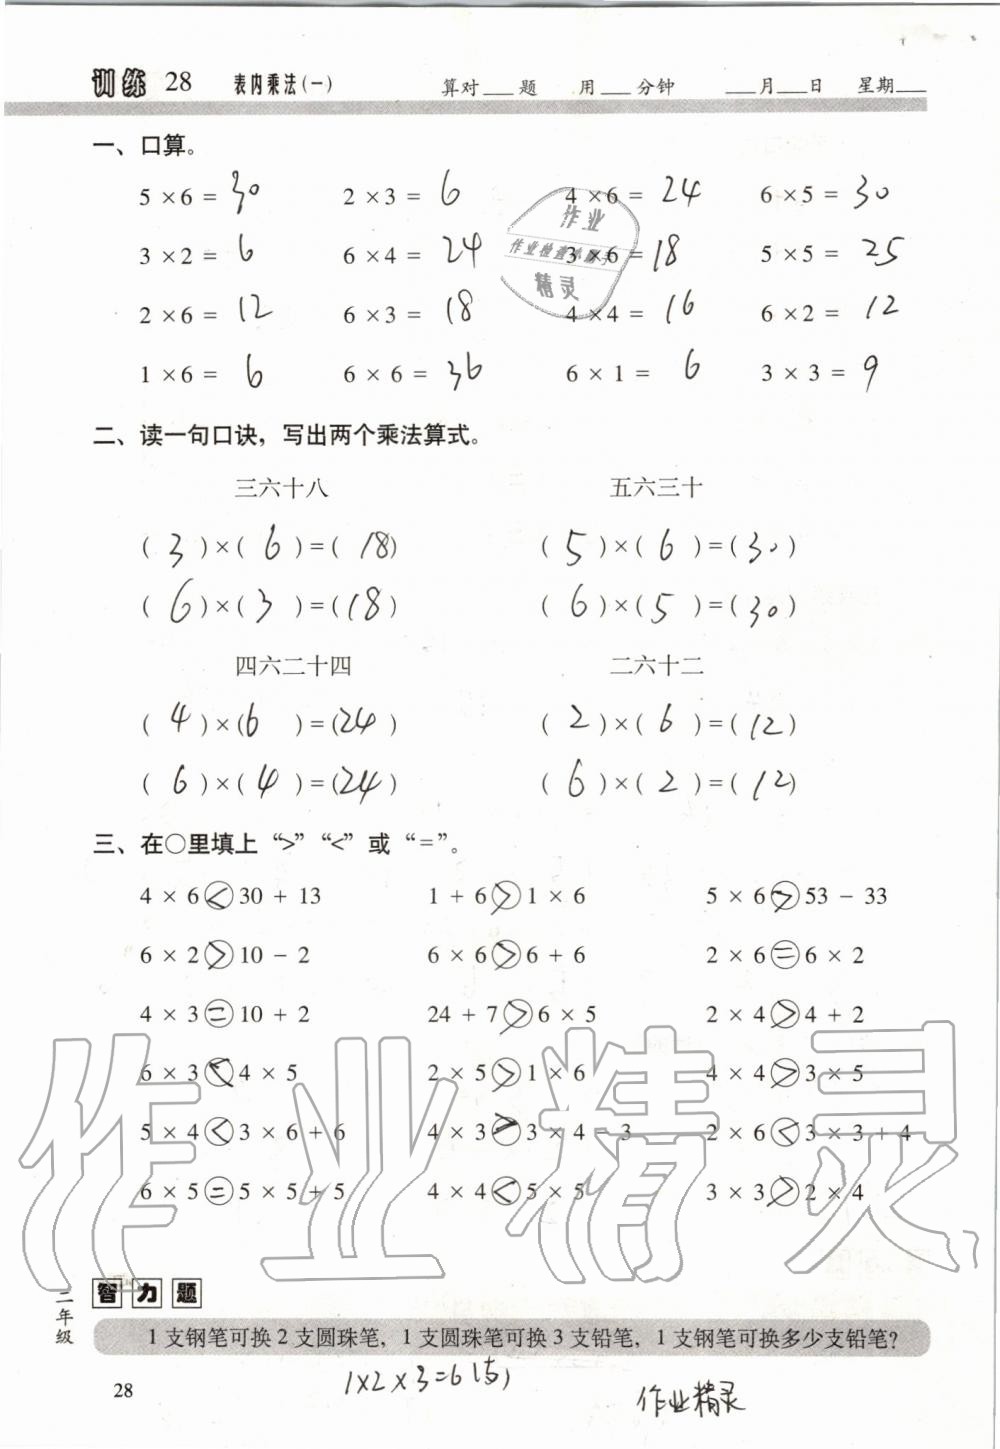 训练 28 表内乘法(一) 算对___题 用___分钟 ___月___日 星期___
一、口算。
5×6= 30 2×3= 6 4×6= 24 6×5= 30
3×2= 6 6×4= 24 3×6= 18 5×5= 25
2×6= 12 6×3= 18 4×4= 16 6×2= 12
1×6= 6 6×6= 36 6×1= 6 3×3= 9
二、读一句口诀，写出两个乘法算式。
三六十八 五六三十
(3)×(6)=(18) (5)×(6)=(30)
(6)×(3)=(18) (6)×(5)=(30)
四六二十四 二六十二
(4)×(6)=(24) (2)×(6)=(12)
(6)×(4)=(24) (6)×(2)=(12)
三、在○里填上“>”“<”或“=”。
4×6<30+13 1+6>1×6 5×6>53-33
6×2>10-2 6×6>6+6 2×6=6×2
4×3=10+2 24+7>6×5 2×4>4+2
6×3<4×5 2×5>1×6 4×4>3×5
5×4<3×6+6 4×3>3×4-3 2×6<3×3+4
6×5=5×5+5 4×4<5×5 3×3>2×4
智力题
1支钢笔可换2支圆珠笔，1支圆珠笔可换3支铅笔，1支钢笔可换多少支铅笔?
1×2×3=6(支)
作业精灵
28
二年级
作业
作业检查小助手
精灵
作业精灵